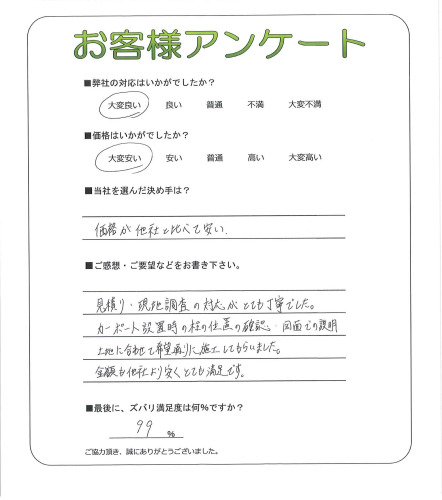 お客様アンケート
■弊社の対応はいかがでしたか？
大変良い 良い 普通 不満 大変不満
■価格はいかがでしたか？
大変安い 安い 普通 高い 大変高い
■当社を選んだ決め手は？
価格が他社と比べて安い.
■ご感想・ご要望などをお書き下さい。
見積り・現地調査の対応がとても丁寧でした。
カーポート設置時の柱の位置の確認・図面での説明
土地に合わせて希望通りに施工してもらいました。
金額も他社より安くとても満足です。
■最後に、ズバリ満足度は何%ですか？
99 %
ご協力頂き、誠にありがとうございました。